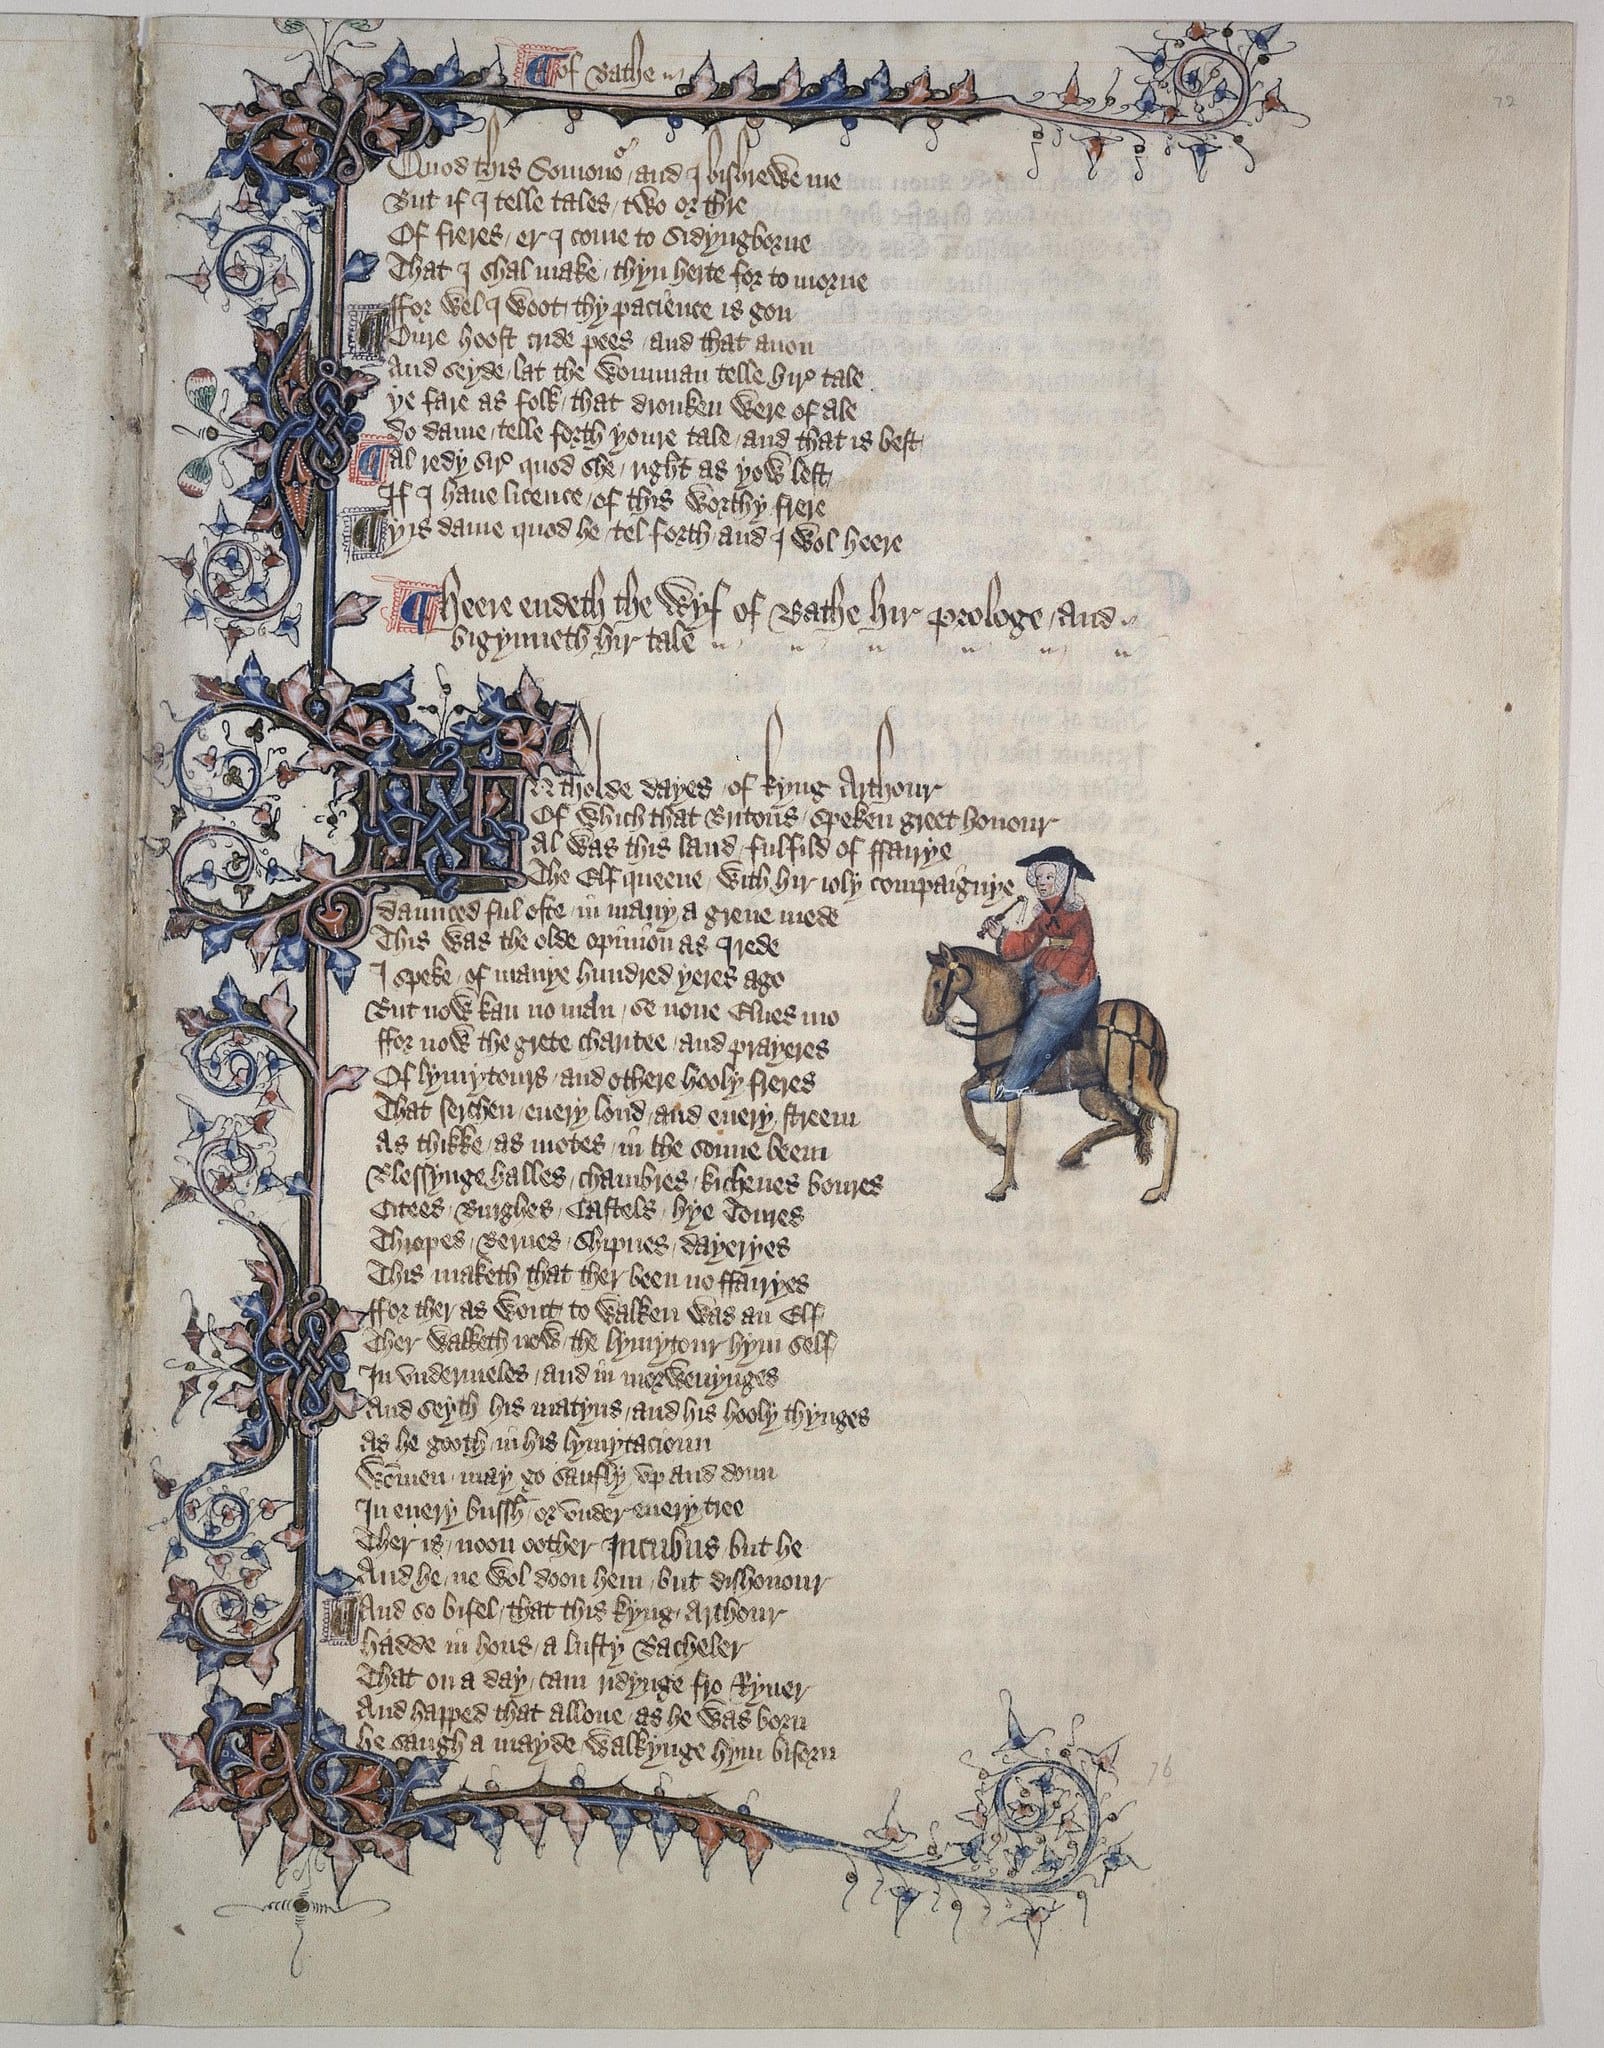 of Bathe
Quod this Somonor and I bishrewe me
But if I telle tales two or thre
Of freres er I come to Sidyngborne
That I shal make thyn herte for to morne
ffor wel I woot thy pacience is gon
Oure hoost cride pees and that anon
And seyde lat the womman telle hire tale
ye fare as folk that dronken were of ale
Do dame telle forth youre tale and that is best
Al redy sire quod she right as yow lest
If I haue licence of this worthy frere
yis dame quod he tel forth and I wol heere
Heere endeth the Wyf of Bathe hir prologe and
bigynneth hir tale
In tholde dayes of kyng Arthour
Of which that Britons speken greet honour
Al was this land fulfild of ffairye
The Elf queene with hir ioly compaignye
daunced ful ofte in many a grene mede
This was the olde opinion as I rede
I speke of manye hundred yeres ago
But now kan no man se none Elues mo
ffor now the grete charitee and prayeres
Of lymytours and othere hooly freres
That serchen euery lond and euery streem
As thikke as motes in the sonne beem
Blessynge halles chambres kichenes boures
Citees Burghes Castels hye Toures
Thropes Bernes Shipnes dayeryes
This maketh that ther been no ffairyes
ffor ther as wont to walken was an Elf
Ther walketh now the lymytour hym self
In vndermeles and in morwenynges
And seyth his matyns and his hooly thynges
As he gooth in his lymytacioun
Wommen may go saufly vp and doun
In euery bussh or vnder euery tree
Ther is noon oother Incubus but he
And he ne wol doon hem but dishonour
And so bifel that this kyng Arthour
hadde in hous a lusty Bacheler
That on a day cam ridynge fro Ryuer
And happed that allone as he was born
he saugh a mayde walkynge hym biforn
72
76